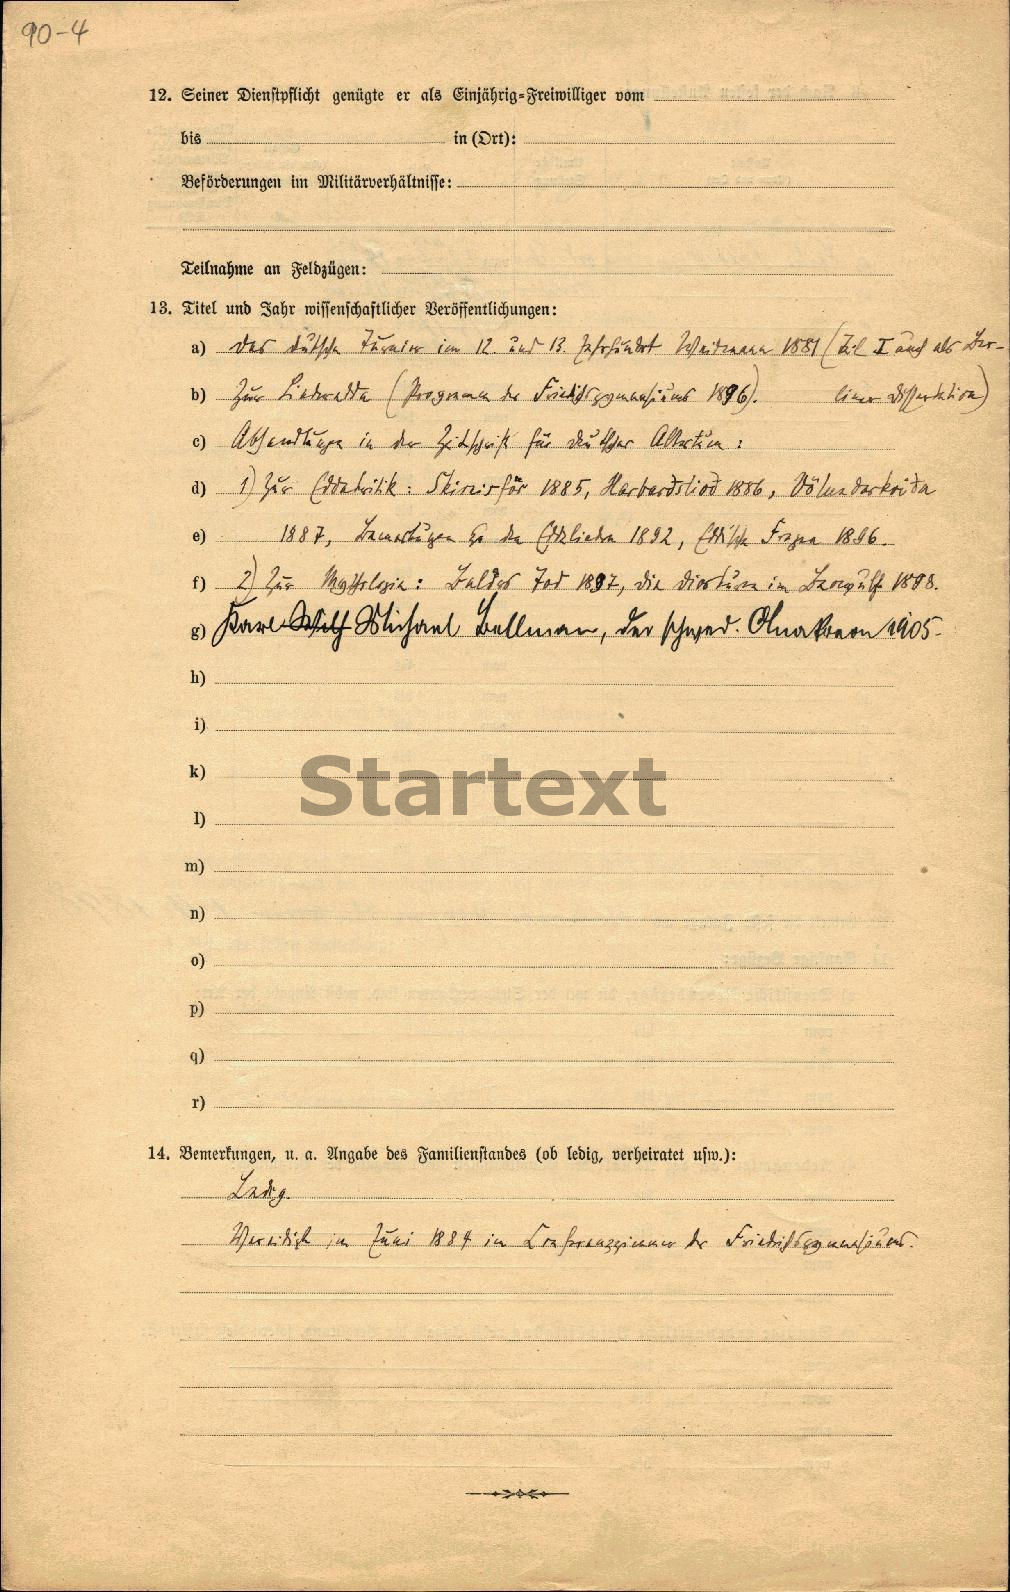 90-4
12. Seiner Dienstpflicht genügte er als Einjährig-Freiwilliger vom
bis in (Ort):
Beförderungen im Militärverhältnisse:
Teilnahme an Feldzügen:
13. Titel und Jahr wissenschaftlicher Veröffentlichungen:
a) Das deutsche Turnier im 12. und 13. Jahrhundert Weidmann 1881 (Teil I auch als Ber-
b) Zur Liederedda (Programm des Friedrichsgymnasiums 1896). liner Dissertation)
c) Abhandlungen in der Zeitschrift für deutsches Altertum:
d) 1) Zur Eddakritik: Skirnisför 1885, Harbardsliod 1886, Völundarkvida
e) 1887, Bemerkungen zu den Eddaliedern 1892, Eddische Fragen 1896.
f) 2) Zur Mythologie: Balders Tod 1897, die Dioskuren im Beowulf 1898.
g) Karl Wilh Michael Bellman, der schwed. Anakreon 1905.
h)
i)
k)
Startext
l)
m)
n)
o)
p)
q)
r)
14. Bemerkungen, u. a. Angabe des Familienstandes (ob ledig, verheiratet usw.):
Ledig.
Vereidigt im Juni 1884 im Conferenzzimmer des Friedrichsgymnasiums.